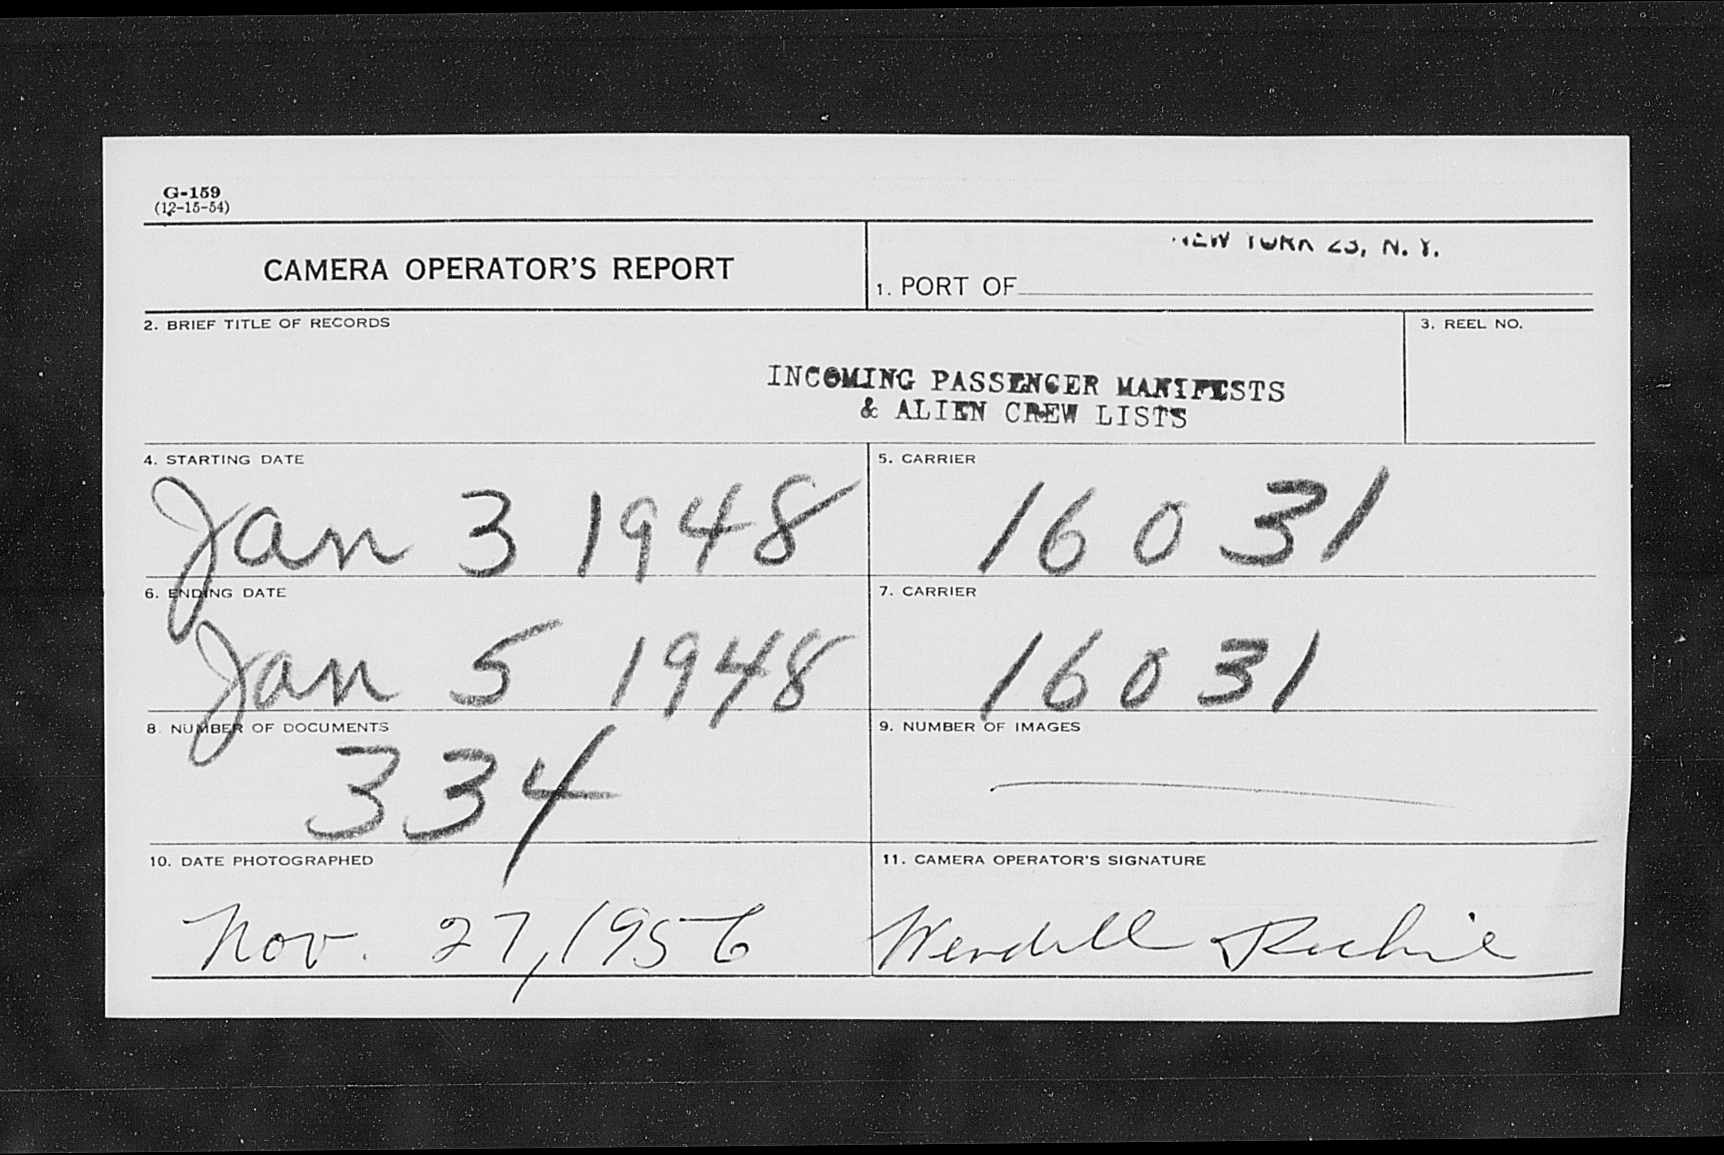 G-159
(12-15-54)
CAMERA OPERATOR'S REPORT
NEW YORK 23, N. Y.
1. PORT OF
2. BRIEF TITLE OF RECORDS
3. REEL NO.
INCOMING PASSENGER MANIFESTS
& ALIEN CREW LISTS
4. STARTING DATE
Jan 3 1948
5. CARRIER
16031
6. ENDING DATE
Jan 5 1948
7. CARRIER
16031
8. NUMBER OF DOCUMENTS
334
9. NUMBER OF IMAGES
10. DATE PHOTOGRAPHED
Nov. 27, 1956
11. CAMERA OPERATOR'S SIGNATURE
Wendell